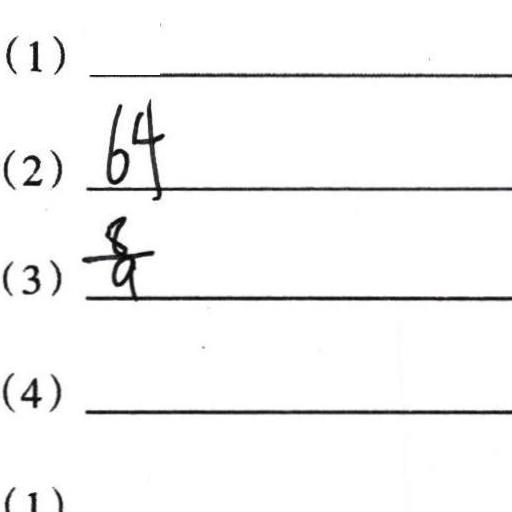 (1)
(2) 64
(3) 8/9
(4)
(1)